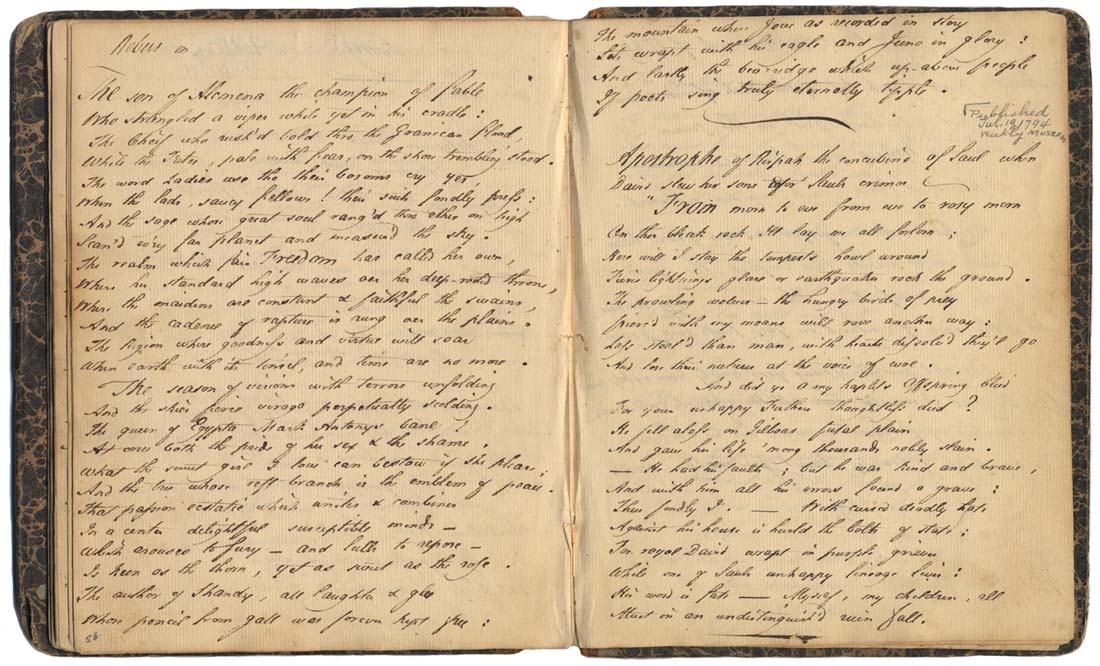 Rebus on
The son of Alcmena the champion of fable
Who strangled a viper while yet in his cradle:
The Cheif who rush'd bold thro the Granican flood,
While the Tutor, pale with fear, on the shore trembling stood.
The word Ladies use tho their bosoms cry yes,
When the lads, saucy fellows! their suit fondly press:
And the sage whose great soul rang'd thro ether on high
Scan'd ev'ry far planet and measur'd the sky.
The realm which fair Freedom has call'd her own,
Where her standard high waves oer her deep-rooted throne,
Where the maidens are constant & faithful the swains,
And the cadence of rapture is rung oer the plains.
The region where goodness and virtue will soar
When earth with its tinsel, and time are no more.
The season of visions with terrors unfolding
And the skies fierce virago perpetually scolding.
The queen of Egypt & Mark Antonys bane!
At once both the pride of her sex & the shame.
What the sweet girl I love can bestow if she please;
And the tree whose reft branch is the emblem of peace.
That passion ecstatic which unites & combines
In a center delightful susceptible minds —
Which arouses to fury — and lulls to repose —
Is keen as the thorn, yet as sweet as the rose.
The author of Shandy, all laughter & glee
Whose pencil from gall was forever kept free:
56
The mountain where Jove as recorded in story
Sits wrapt with his eagle and Juno in glory:
And lastly the beverage which up-above people
If poets sing truly eternally tipple.
Published
Jul. 19, 1794
Weekly Museum
Apostrophe of Rispah the concubine of Saul when
David slew her sons for Sauls crimes
"From morn to eve from eve to rosy morn
On this bleak rock I'll lay me all forlorn:
Here will I stay tho tempests howl around
Tho lightnings glare or earthquakes rock the ground.
The prowling wolves — the hungry birds of prey
Pierc'd with my moans will rove another way:
Less steel'd than man, with hearts dissolv'd they'll go
And lose their natures at the voice of woe.
And did ye O my hapless Offspring bleed
For your unhappy Fathers thoughtless deed?
He fell alass on Gilboas fatal plain
And gave his life 'mong thousands nobly slain.
— He had his faults; but he was kind and brave,
And with him all his errors found a grave:
Thus fondly I. — But cursed deadly hate
Against his house is hurld the bolts of fate:
For royal David wrapt in purple grieves
While one of Sauls unhappy lineage lives:
His word is fate — Myself, my children, all
Must in an undistinguish'd ruin fall.